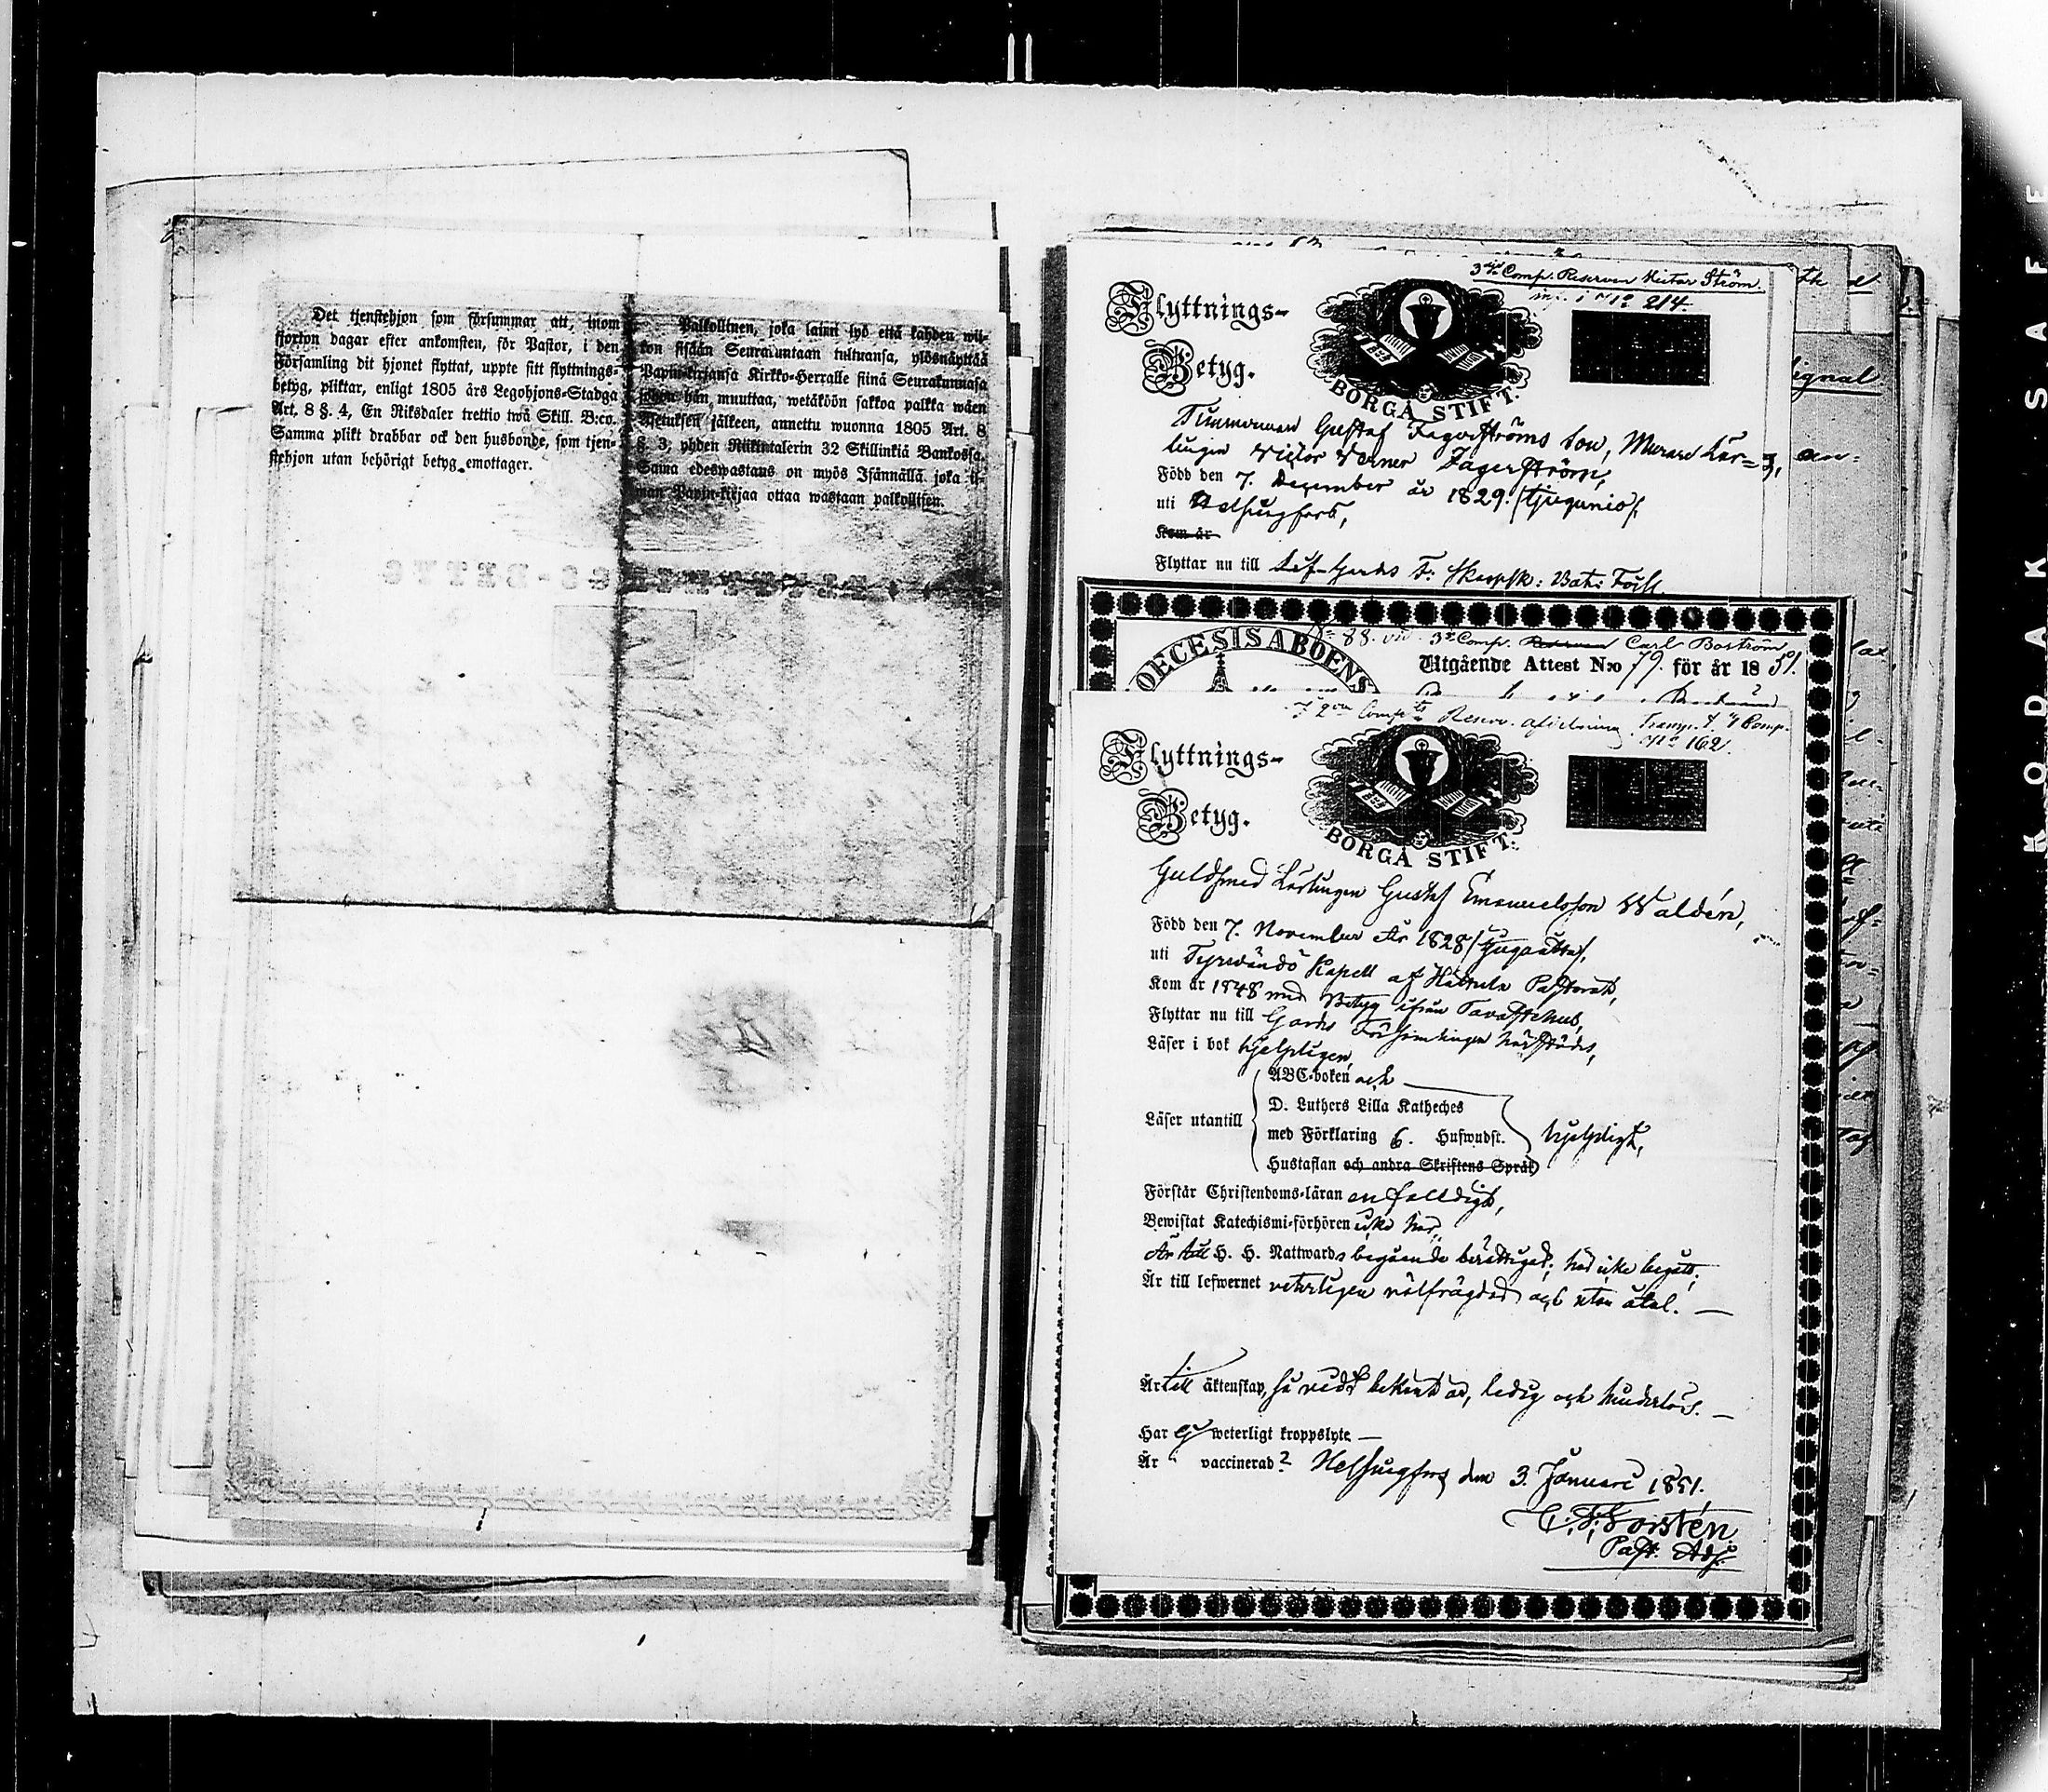 Det tjenstehjon som försummar att, inom
fjorton dagar efter ankomsten, för Pastor, i den
Församling dit hjonet flyttat, uppte sitt flyttnings-
betyg, pliktar, enligt 1805 års Legohjons-Stadga
Art. 8 §. 4, En Riksdaler trettio twå Skill. B:co.
Samma plikt drabbar ock den husbonde, som tjen-
stehjon utan behörigt betyg emottager.
Palkollinen, joka laimi lyö että kahden wii-
kon sisään Seurakuntaan tultuansa, ylösnäyttää
Papin-kirjansa Kirkko-Herralle siinä Seurakunnasa
johon hän muuttaa, wetäköön sakkoa palkka wäen
Asetuksen jälkeen, annettu wuonna 1805 Art. 8
§. 3, yhden Riikintalerin 32 Skillinkiä Bankossa.
Sama edeswastaus on myös Isännällä joka il-
man Papin-kirjaa ottaa wastaan palkollisen.
3dje Comp. Reserven Victor Ström
in. i No 214.
Flyttnings-
Betyg.
BORGÅ STIFT.
Timmerman Gustaf Fagerströms Son, Murare Lär-
lingen Victor Verner Fagerström,
Född den 7. December år 1829. /tjugunio/,
uti Helsingfors,
Kom år
Flyttar nu till Lif-Gardes F: Skarpsk: Bat: Förs.
an-
ignal
DIOECESIS ABOENS
No 88. vid 3e Comp. Reserven Carl Boström
Utgående Attest N:o 79. för år 1851.
Comp. Reserv. afdelning Transp. t. Comp.
No 162.
Flyttnings-
Betyg.
BORGÅ STIFT.
Guldsmed Lärlingen Gustaf Emanuelsson Waldén,
Född den 7. November År 1828 /tjuguåtta/,
uti Tyrwändö Kapell af Hattula Pastorat,
Kom år 1848 med Betyg ifrån Tavastehus,
Flyttar nu till Gardes Församlingen härstädes,
Läser i bok hjelpligen,
ABC-boken och
D. Luthers Lilla Katheches
Läser utantill
med Förklaring 6. Hufwudst. hjelpligt,
Hustaflan och andra Skriftens Språk
Förstår Christendoms-läran enfalldigt,
Bewistat Katechismi-förhören icke här,
Är till H. H. Nattwards begående berättigad; här icke begått.
Är till lefwernet veterligen välfrägdad och utan åtal.
Är till äktenskap, så vidt bekant är, ledig och hinderlös.
Har ej weterligt kroppslyte
Är vaccinerad? Helsingfors den 3. Januari 1851.
C. F. Forstén
Past. Adj.
KODAK SAFE